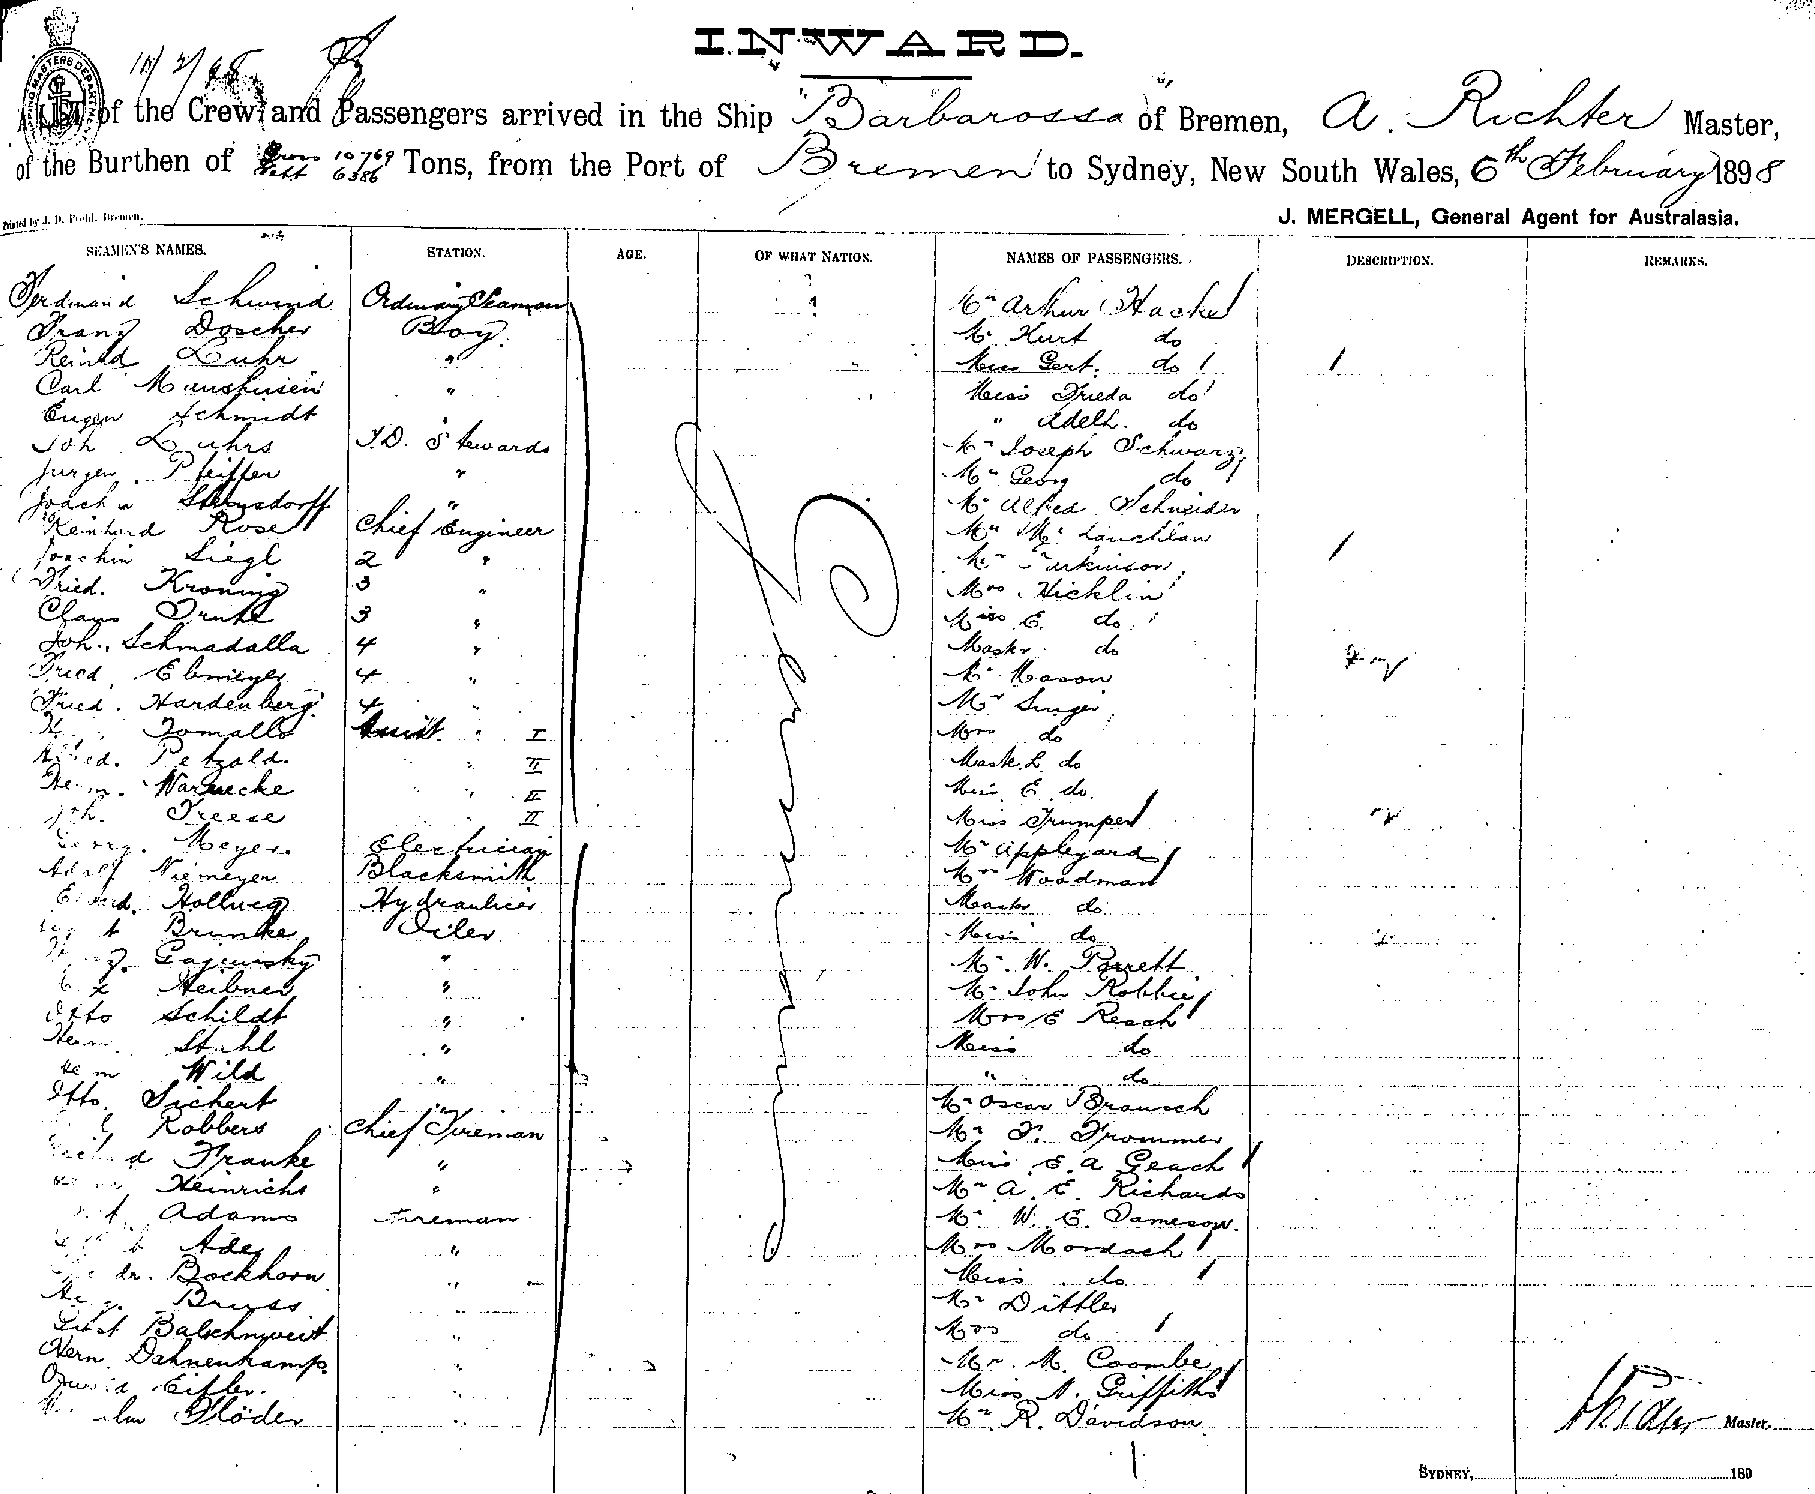 INWARD.
List of the Crew and Passengers arrived in the Ship "Barbarossa" of Bremen, A. Richter Master,
of the Burthen of Gross 10769 Nett 6386 Tons, from the Port of Bremen to Sydney, New South Wales, 6th February 1898
Printed by J. D. Pohl, Bremen.
J. MERGELL, General Agent for Australasia.
SEAMEN'S NAMES. STATION. AGE. OF WHAT NATION. NAMES OF PASSENGERS. DESCRIPTION. REMARKS.
Ferdinand Schwind Ordinary Seaman Mr Arthur Hackel
Franz Doscher Boy. Mr Kurt do
Luhr " Miss Gert. do
Carl " Miss Frieda do
Eugen Schmidt " Adelh. do
Joh Luhrs T.D. Stewards Mr Joseph Schwarz
Jurgen Pfeiffer " Mr Georg do
" Mr Alfred Schneider
Reinhard Rose Chief Engineer Mr Mc Lauchlan
Joachim Siegl 2 " Mr Parkinson
Fried. Kroning 3 " Mrs Hicklin
Claus 3 " Miss E. do
Joh. Schmadalla 4 " Master do
Fried. Ebmeyer 4 " Mr Mason
Fried. Hardenberg 4 " Mr Singer
Tomallo Assist. " I Mrs do
Petzold. " II Mast. L. do
Herm. Warnecke " II Miss E. do
Joh. Freese " II Miss Trumper
Georg. Meyer. Electrician Mr Appleyard
Adolf Niemeyer Blacksmith Mrs Woodman
Hollweg Hydraulicer Master do
Brunke Oiler Miss do
Gajewsky " Mr. W. Parrett
Heibner " Mr John Robbie
Otto Schildt " Mrs E Reach
Herm. Stahl " Miss do
Wild " " do
Otto Sichert " Mr Oscar Brausch
Robbers Chief Fireman Mr F. Frommer
Franke " Miss E. A Geach
Heinrichs " Mr A. E. Richards
Adams Fireman Mr W. E. Jameson.
Ade " Mrs Mordach
Bockhorn " Miss do
Bruss " Mr Dittler
" Mrs do
Herm. Dahnenkamp. " Mr. M. Coombe
Eitler. " Miss A. Griffiths
Flöder " Mr R. Davidson
Master.
SYDNEY, 189